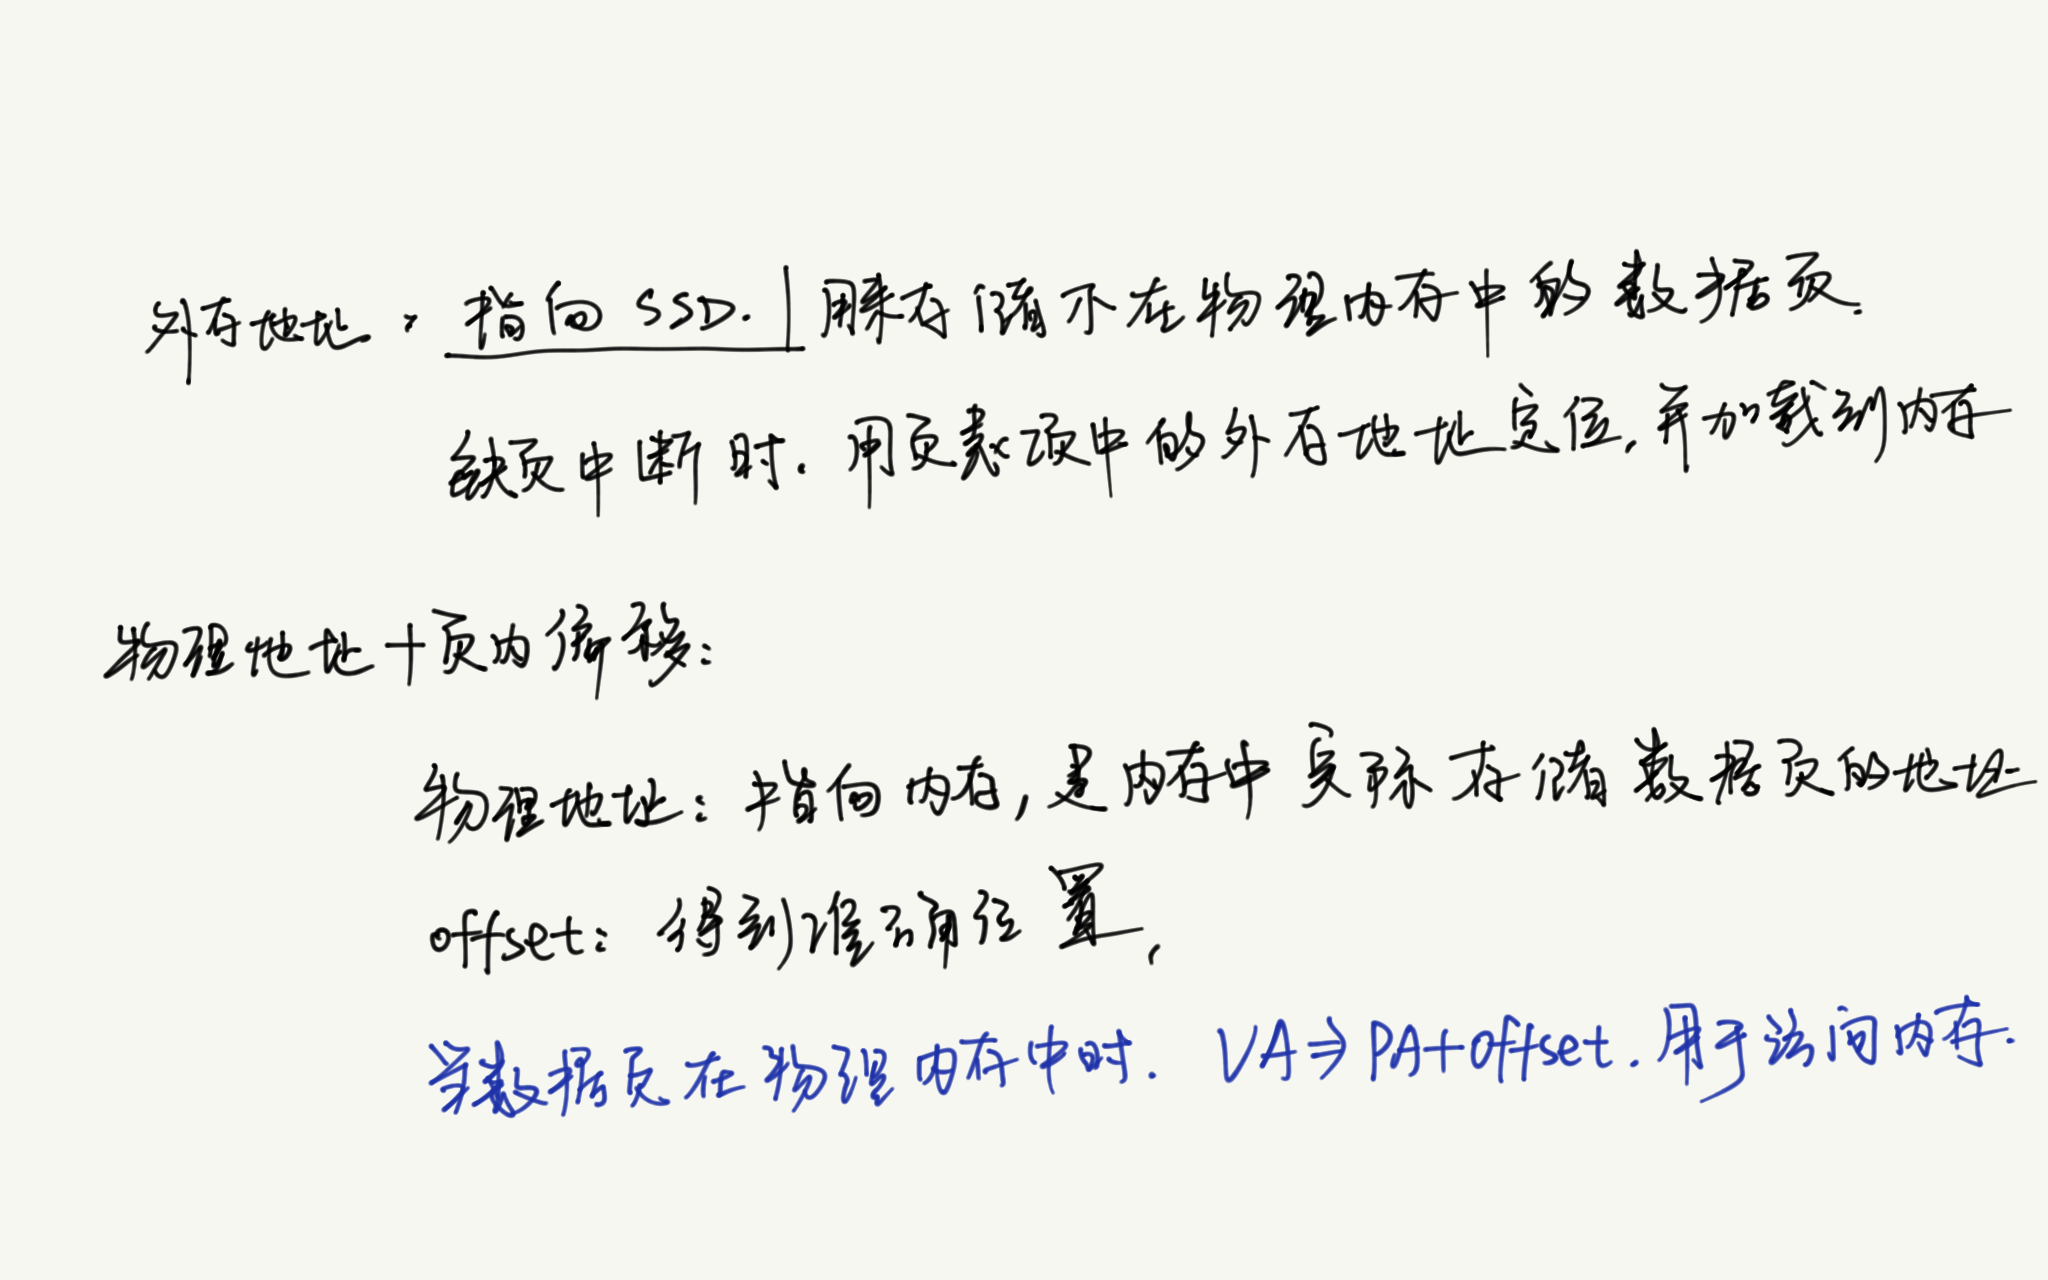 外存地址: 指向 SSD. | 用来存储不在物理内存中的数据页.
缺页中断时. 用页表项中的外存地址定位, 并加载到内存
物理地址+页内偏移:
物理地址: 指向内存, 是内存中实际存储数据页的地址
offset: 得到准确位置,
当数据页在物理内存中时. VA⇒PA+offset. 用于访问内存.